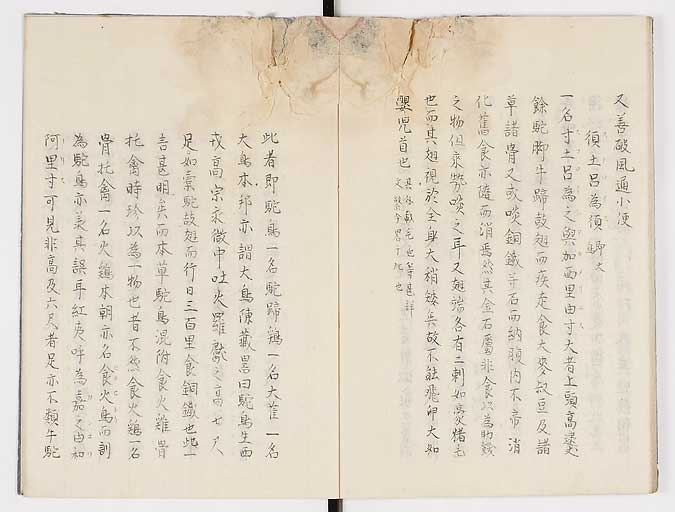 又善破風通小便
須土呂為須 郷大
一名寸土呂為之與加西里由寸大者上頭高
餘駝脚牛蹄鼓翅而疾走食大麥菽豆及諸
草諸骨又或啖銅鐵并石而納腹内不啻消
化舊食亦隨而消焉然其金石屬非食以為
之物但乘勢啖之耳又翅端各有二刺如
也而其翅視於全身大稍矮矣故不能飛卵大如
嬰児首也
此者即駝鳥一名駝蹄鶏一名大雀一名
大鳥本邦亦謂大鳥陳蔵器曰駝鳥生西
戎高宗永徽中吐火羅獻之高七尺
足如橐駝鼓翅而行日三百里食銅鐵也此一
言甚明矣而本草駝鳥混附食火雞骨
托禽時珍以為一物也昔不然食火鶏一名
骨托禽一名火鶏本朝亦名食火鳥而訓
為駝鳥亦美其誤耳紅夷呼為嘉
阿里寸可見非高及六尺者足亦不類牛駝